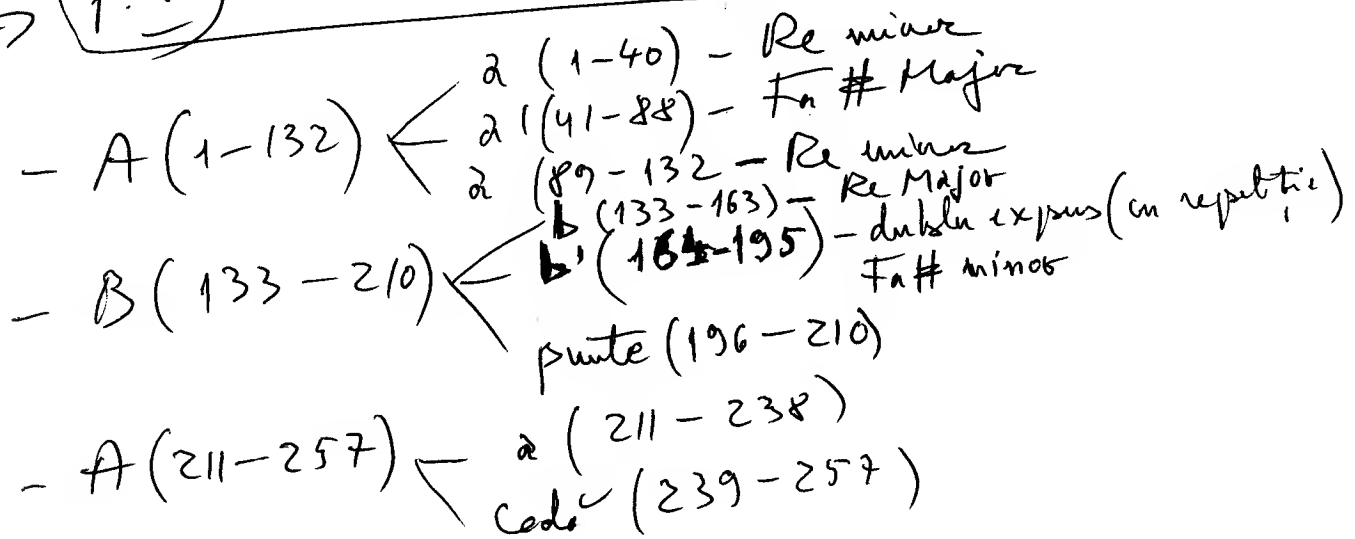 - A (1-132) a (1-40) - Re minor
a' (41-88) - Fa # Major
a (89-132 - Re minor
- B (133-210) b (133-163) - Re Major
b' (164-195) - dublu expus (cu repetiție)
Fa# minor
punte (196-210)
- A (211-257) a (211-238)
codă (239-257)